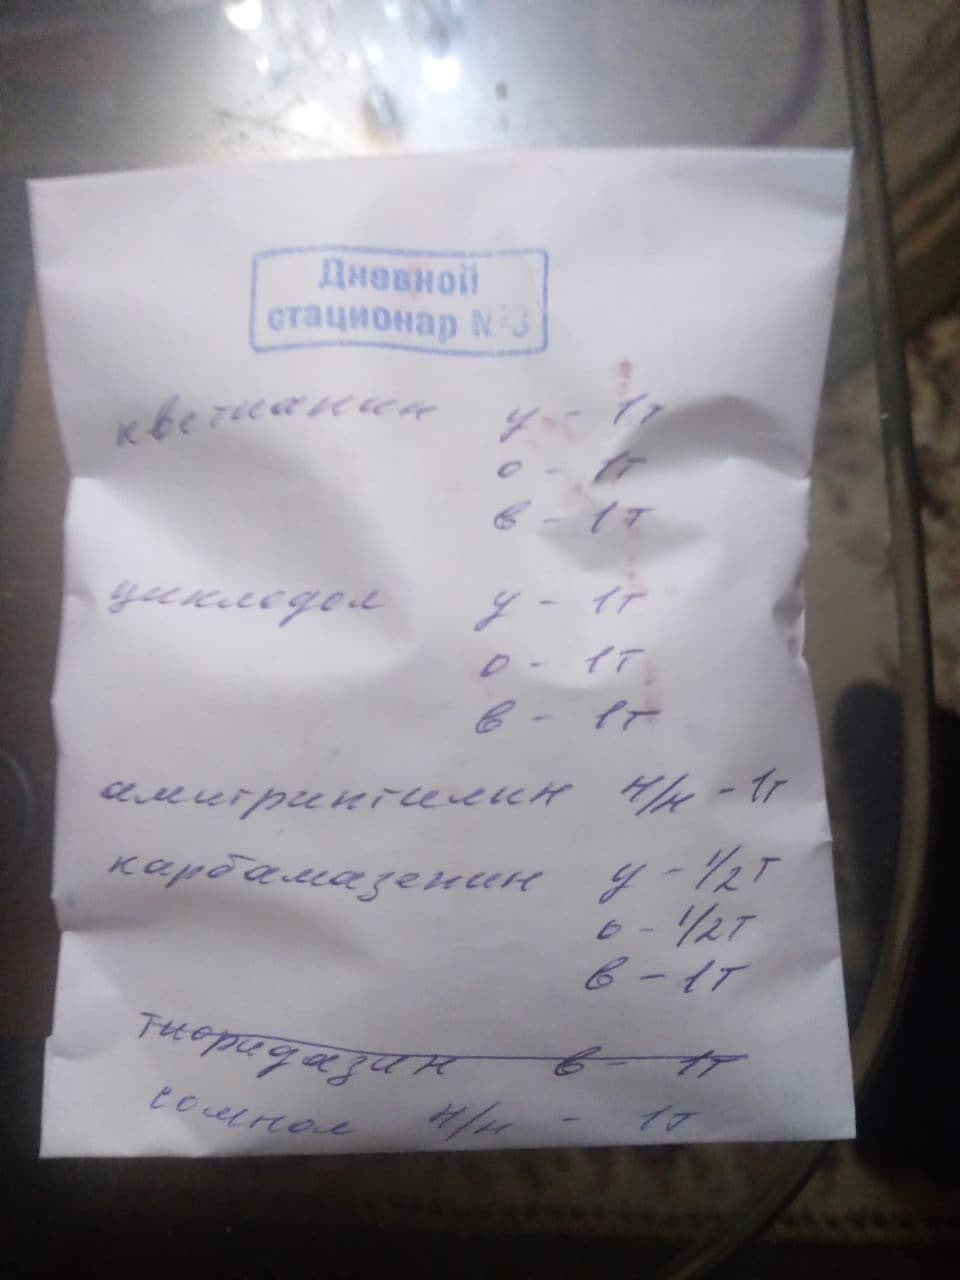 Дневной
стационар №3
кветиапин у - 1т
о - 1т
в - 1т
циклодол у - 1т
о - 1т
в - 1т
амитриптилин н/н - 1т
карбамазепин у - 1/2т
о - 1/2т
в - 1т
тиоридазин в - 1т
сомнол н/н - 1т